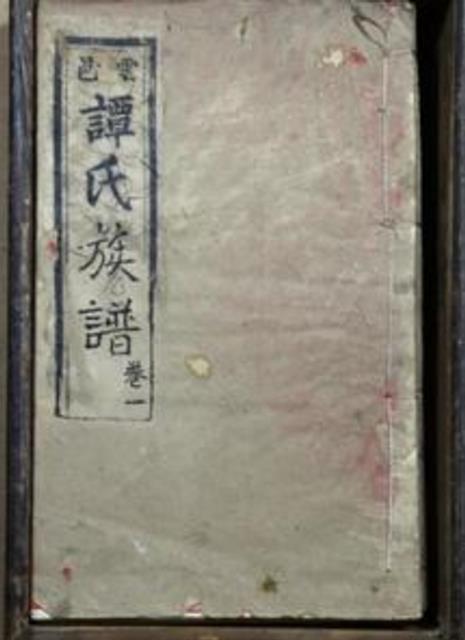 雲邑
譚氏族譜
卷一